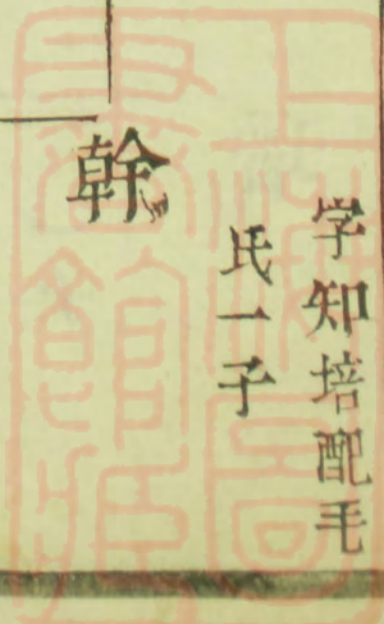 学知培配毛
氏一子
幹